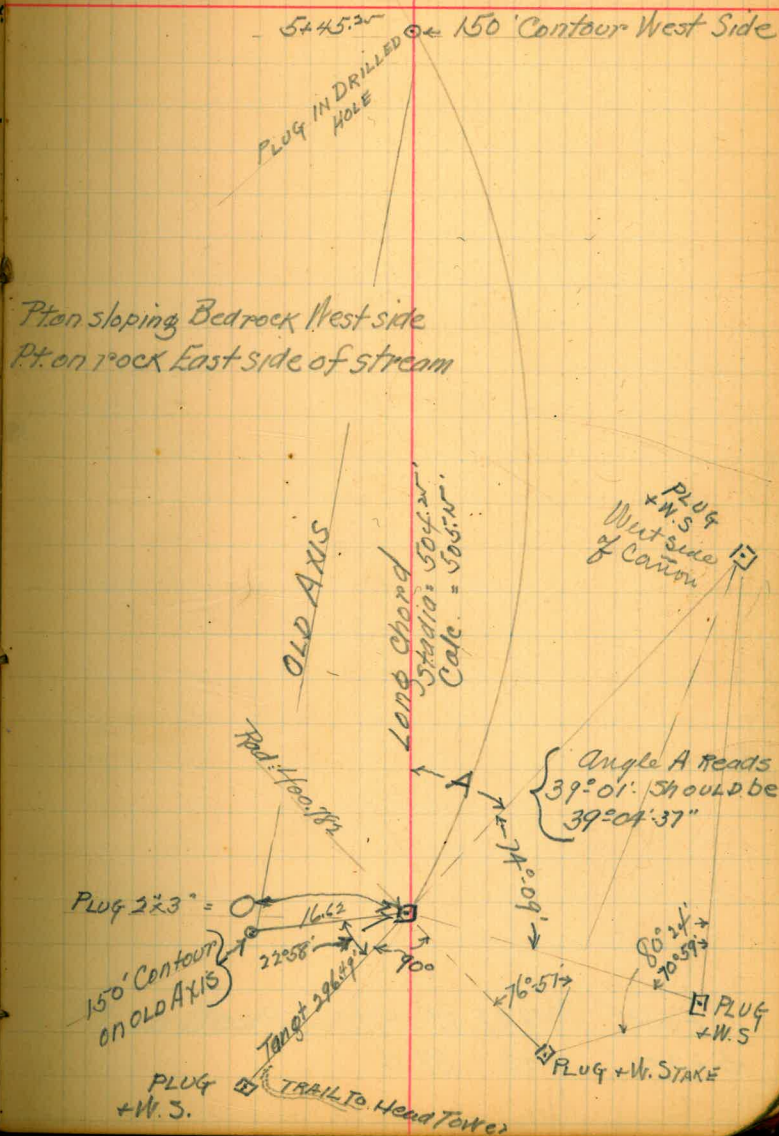 5+45.25
150' Contour West Side
PLUG IN DRILLED
HOLE
Pt. on sloping Bedrock West side
Pt. on rock East side of stream
OLD AXIS
Long Chord
Stadia = 504.25'
Calc. = 505.15'
PLUG
+W.S
West side
of Cañon
Rad. 400.782
A
Angle A Reads
39°-01'. Should be
39°-04'-37"
74°-09'
PLUG 2"x3" =
16.62
22°58'
90°
150' Contour
on OLD AXIS
Tangt 296.49'
76°-51'
80°24'
70°59'
PLUG
+W.S
PLUG + W. STAKE
PLUG
+W.S.
TRAIL TO Head Tower